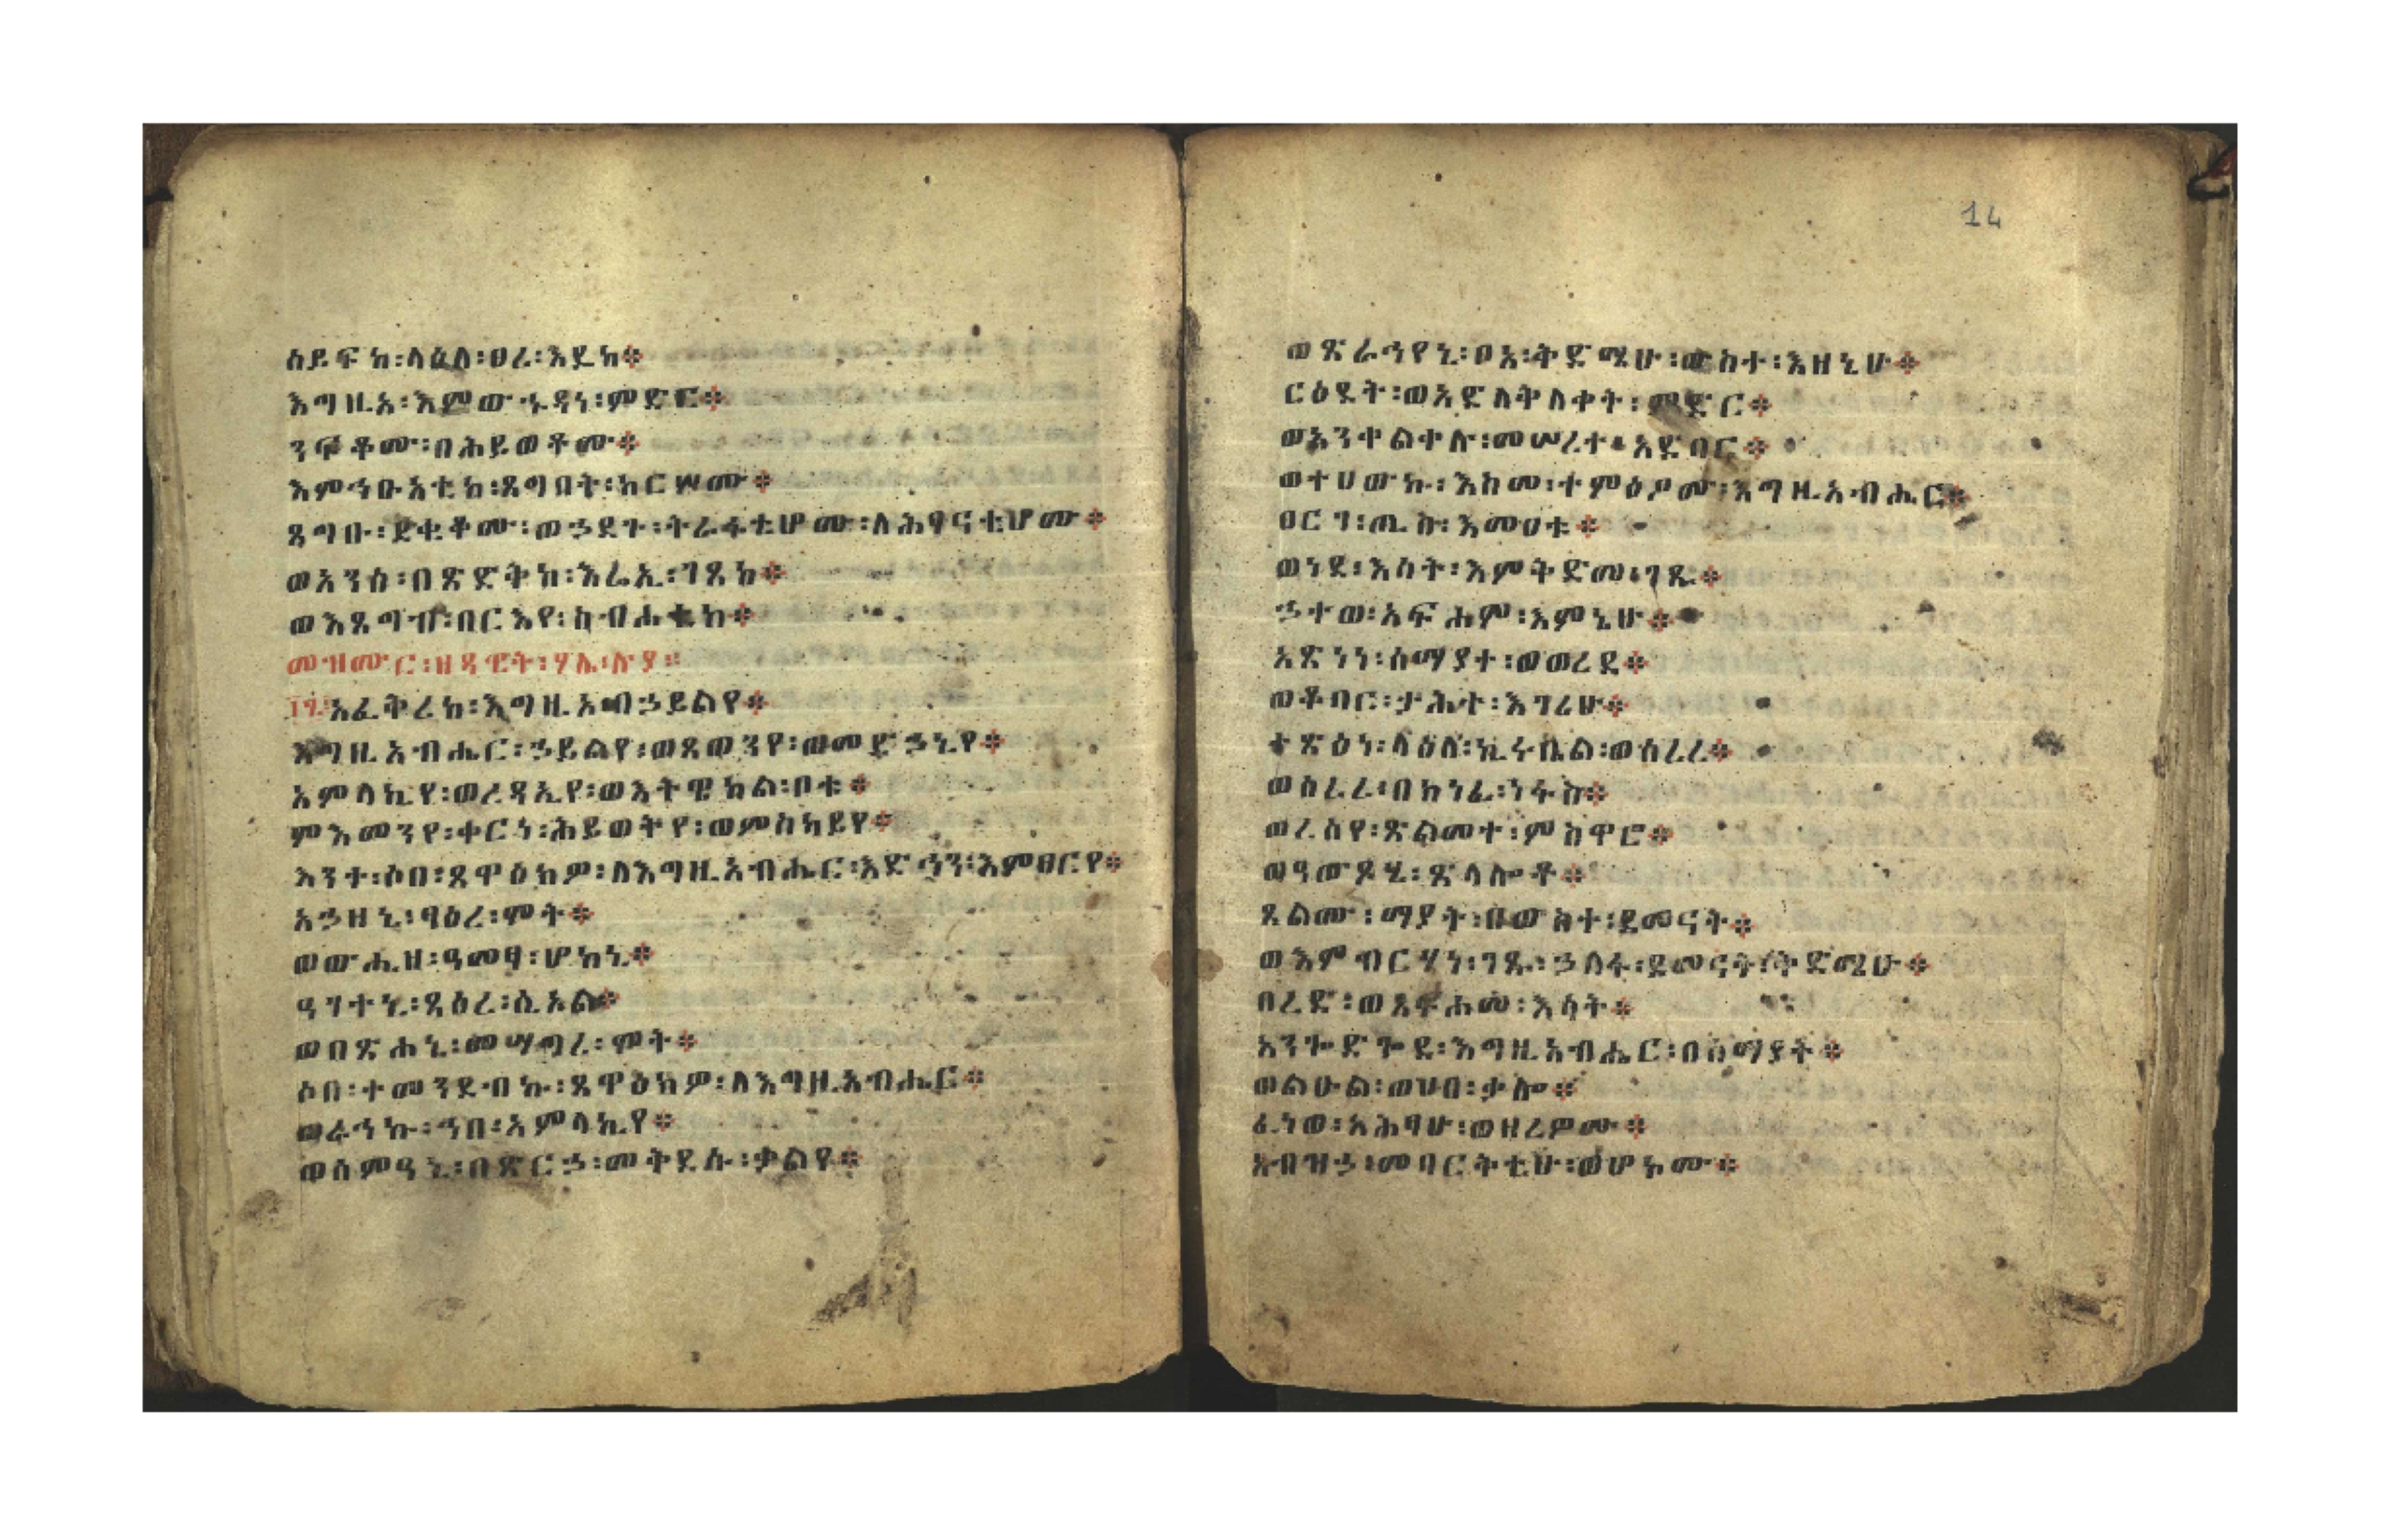 ሰይፍከ፡ላዕለ፡ፀረ፡እዴከ፨
እግዚአ፡እምውኁዳነ፡ምድር፨
ንፍቆሙ፡በሕይወቶሙ፨
እምኅቡአቲከ፡ጸግበት፡ከርሦሙ፨
ጸግቡ፡ደቂቆሙ፡ወኃደጉ፡ትራፋቲሆሙ፡ለሕፃናቲሆሙ፨
ወአንሰ፡በጽድቅከ፡እሬኢ፡ገጸከ፨
ወእጸግብ፡በርእየ፡ስብሐቲከ፨
መዝሙር፡ዘዳዊት፡ሃሌ፡ሉያ፨
፲፯አፈቅረከ፡እግዚአ፡በኃይልየ፨
እግዚአብሔር፡ኃይልየ፡ወጸወንየ፡ወመድኃኒየ፨
አምላኪየ፡ወረዳኢየ፡ወእትዌከል፡ቦቱ፨
ምእመንየ፡ቀርነ፡ሕይወትየ፡ወምስካይየ፨
እንተ፡ሶበ፡ጸዋዕክዎ፡ለእግዚአብሔር፡እድኅን፡እምፀርየ፨
አኃዘኒ፡ፃዕረ፡ሞት፨
ወውሒዘ፡ዓመፃ፡ሆከኒ፨
ዓገተኒ፡ጻዕረ፡ሲኦል፨
ወበጽሐኒ፡መሣግረ፡ሞት፨
ሶበ፡ተመንደብኩ፡ጸዋዕክዎ፡ለእግዚአብሔር፨
ወራኅኩ፡ኀበ፡አምላኪየ፨
ወሰምዓኒ፡በጽርኃ፡መቅደሱ፡ቃልየ፨
14
ወጽራኅየኒ፡ቦአ፡ቅድሜሁ፡ውስተ፡እዘኒሁ፨
ርዕደት፡ወአድለቅለቀት፡ምድር፨
ወአንቀልቀሉ፡መሠረተ፡አድባር፨
ወተሀውኩ፡እስመ፡ተምዕዖሙ፡እግዚአብሔር፨
ዐርገ፡ጢሱ፡እመዐቱ፨
ወነደ፡እሳት፡እምቅድመ፡ገጹ፨
ኃተወ፡አፍሐም፡እምኔሁ፨
አጽነነ፡ሰማያተ፡ወወረደ፨
ወቆባር፡ታሕተ፡እገሪሁ፨
ተጽዕነ፡ላዕለ፡ኪሩቤል፡ወሰረረ፨
ወሰረረ፡በክነፈ፡ነፋስ፨
ወረሰየ፡ጽልመተ፡ምስዋሮ፨
ወዓውዶሂ፡ጽላሎቶ፨
ጸልሙ፡ማያት፡በውስተ፡ደመናት፨
ወእምብርሃነ፡ገጹ፡ኃለፋ፡ደመናት፡ቅድሜሁ፨
በረድ፡ወአፍሐመ፡እሳት፨
አንጐድጐደ፡እግዚአብሔር፡በሰማያት፨
ወልዑል፡ወሀበ፡ቃሎ፨
ፈነወ፡አሕፃሁ፡ወዘረዎሙ፨
አብዝኃ፡መባርቅቲሁ፡ወሆኮሙ፨